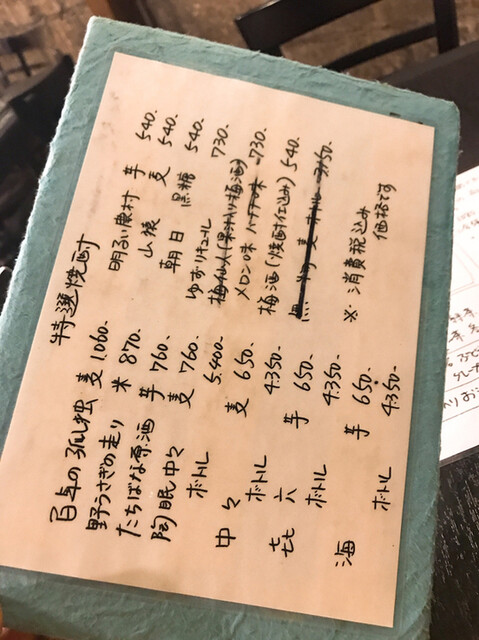 特選焼酎
百年の孤独 麦 1060-
野うさぎの走り 米 870-
たちばな原酒 芋 760-
陶眠中々 麦 760-
ボトル 5,400-
中々 麦 650-
ボトル 4,350-
㐂六 芋 650-
ボトル 4,350-
海 芋 650-
ボトル 4,350-
明るい農村 芋 540-
山猿 麦 540-
朝日 黒糖 540-
ゆずリキュール 730-
梅仙人(果汁入り梅酒)
メロン味 730-
梅酒(焼酎仕込み) 540-
麦 ボトル
※消費税込み
価格です